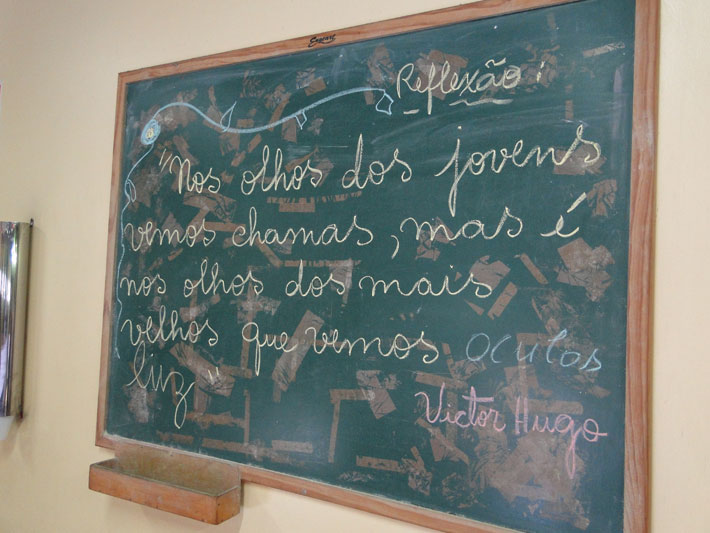 Reflexão:
"Nos olhos dos jovens
vemos chamas, mas é
nos olhos dos mais
velhos que vemos oculos
luz"
Victor Hugo